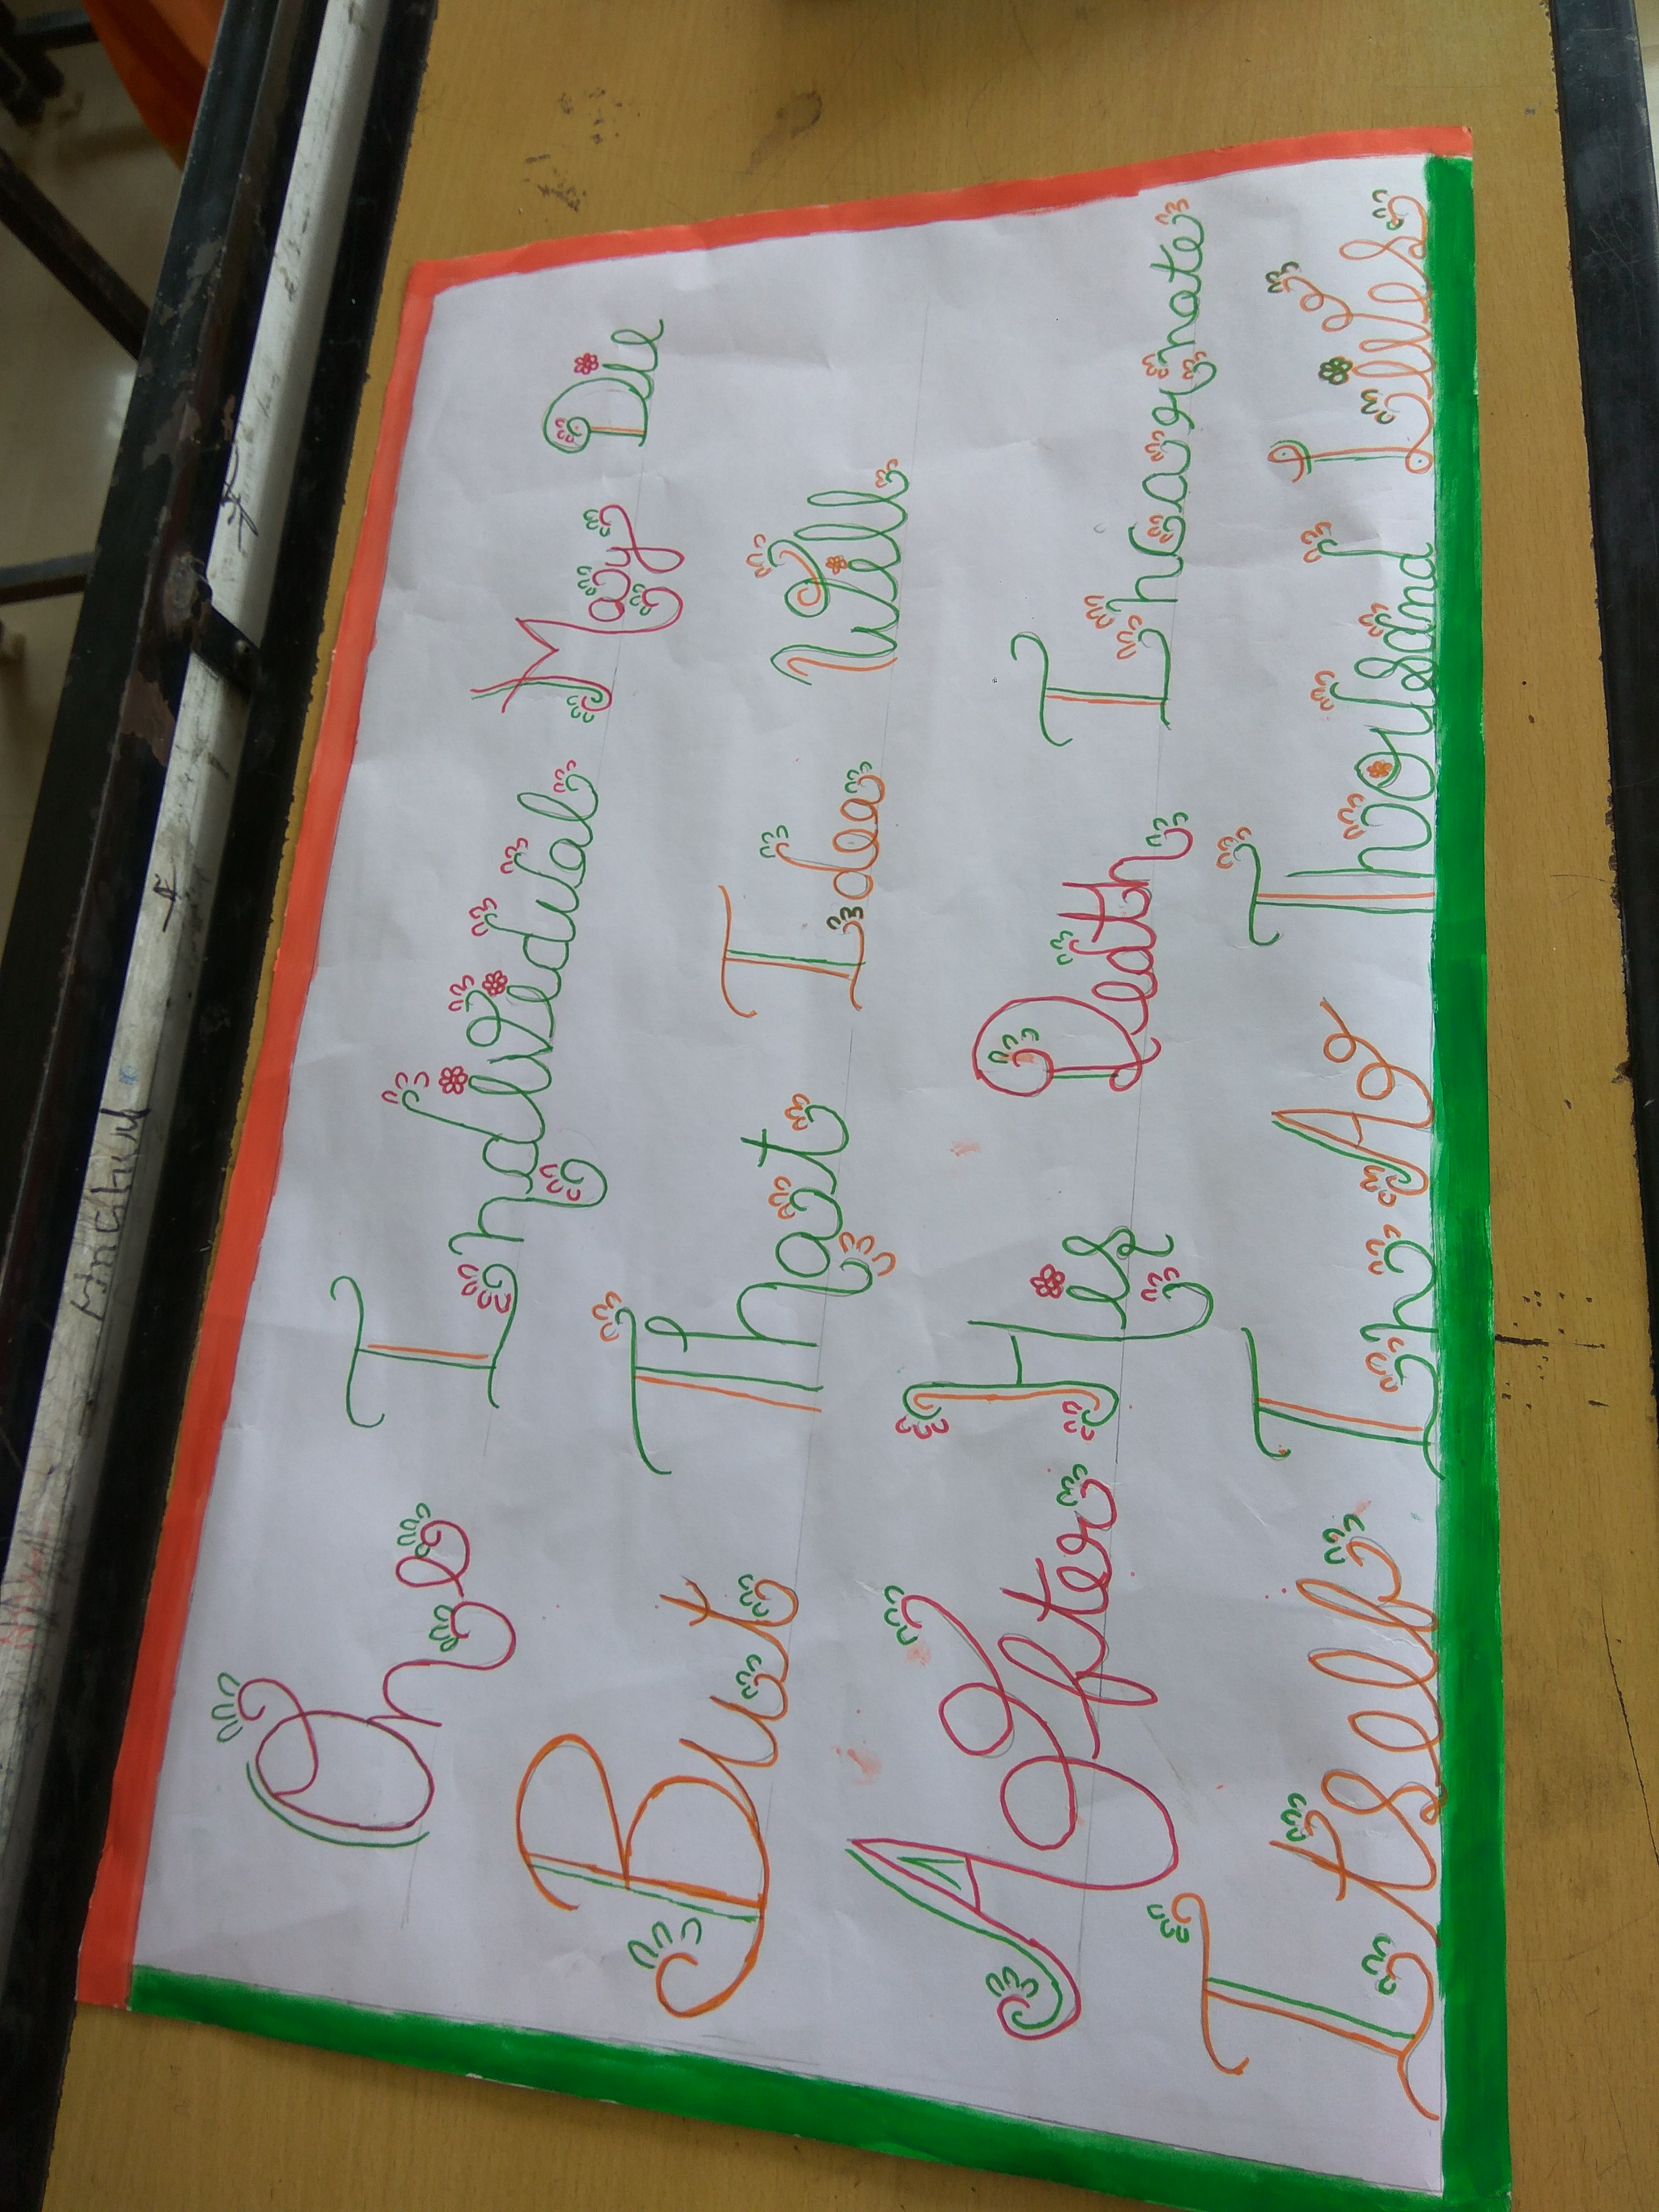 One Individual May Die
But That Idea Will
After His Death Incarnate
Itself In A Thousand Lives